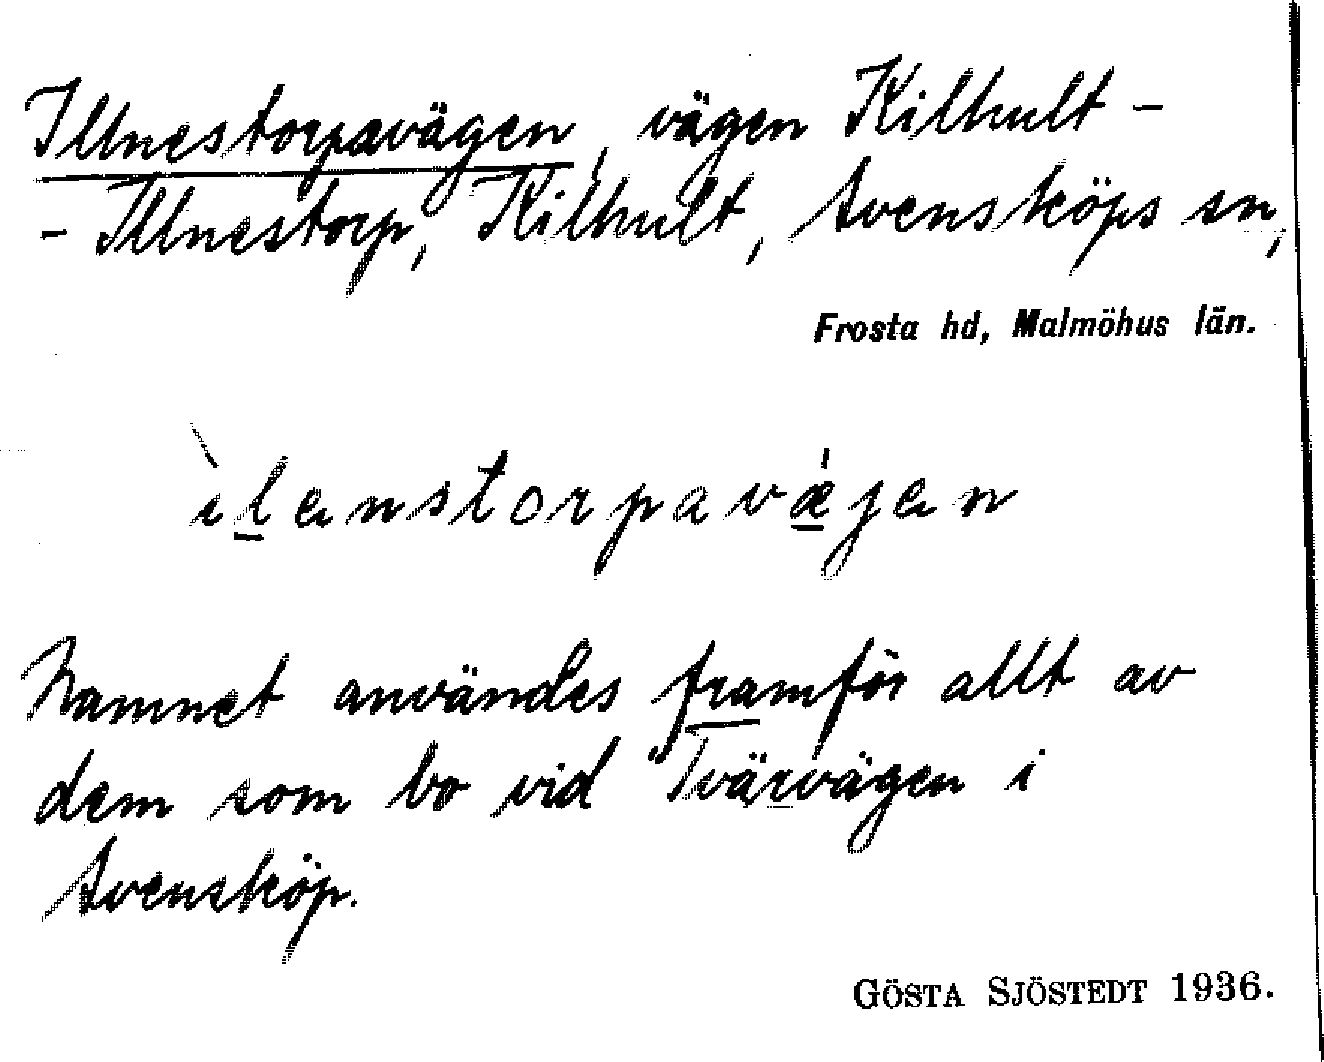 Illnestorpavägen, vägen Kilhult -
- Illnestorp, Kilhult, Svensköps sn,
Frosta hd, Malmöhus län.
ìlenstorpavǽjen
Namnet användes framför allt av
dem som bo vid Tvärvägen i
Svensköp.
GÖSTA SJÖSTEDT 1936.